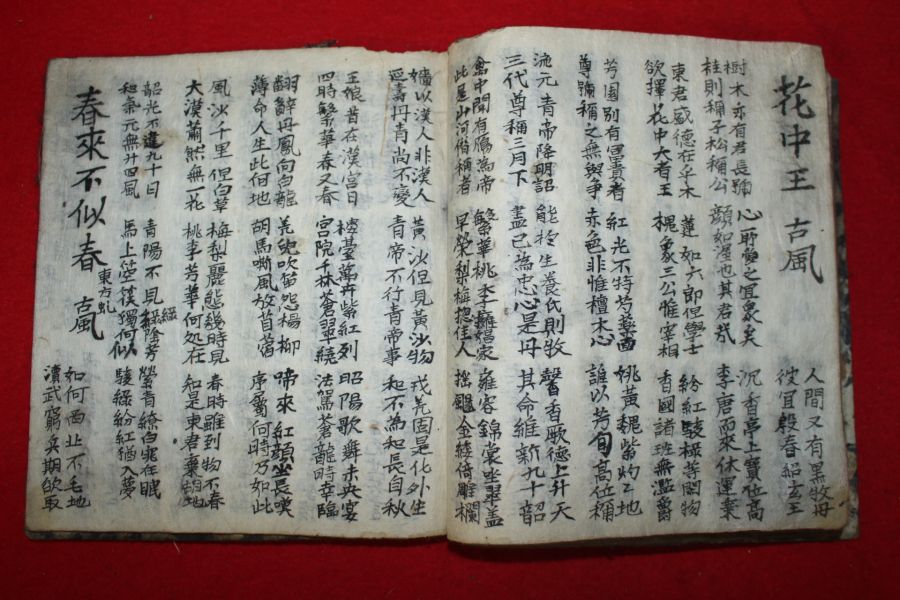 花中王 古風
人間又有黑牧丹
彼宜殷春紹玄王
樹木亦有君長號 心耶愛之宜衆矣 沉香亭上寶位高
桂則稱子松稱公 顔如渥也其君哉 李唐而來休運棄
東君盛德在乎木 蓮如六郎但學士 紛紅駭綠芳園物
欲擇花中大者王 槐象三公惟宰相 香國諸班無濫爵
芳園別有富貴者 紅光不特芍藥 姚黃魏紫灼灼地
尊號稱之無與爭 赤色非惟檀木心 誰以芳旬高位稱
元青帝降明詔 能於生養民則牧 馨香厥德上升天
三代尊稱三月下 盡已爲忠心是丹 其命維新九十韶
禽中聞有鴈爲帝 繁華桃李 雍容錦裳坐翠盖
此是山河偕稱者 早榮梨梅摠佳人 搖颺金綾倚雕欄
嬙以漢人非漢人 黃沙但見黃沙物 戎羌固是化外生
延壽丹青尚不變 青帝不行青帝事 和不爲和長自秋
王娘昔在漢宮日 樓臺萬卉紫紅列 昭陽歌舞未央宴
四時繁華春又春 宮院千林蒼翠繞 法駕蒼龍時幸臨
翻辭丹鳳向白龍 羌兒吹笛怨楊柳 啼來紅顔坐長嘆
薄命人生此何地 胡馬嘶風放苜蓿 序屬何時乃如此
風沙千里但白草 梅梨麗態幾時見 春時雖到物不春
大漠蕭然無一花 桃李芳華何處在 知是東君棄地
韶光不違九十日 青陽不見綠陰芳 縈青繚白在眠
和氣元無卄四風 馬上空篌獨何似 駭綠紛紅猶入夢
春來不似春 東方虬 古風
如何西北不毛地
瀆武窮兵期欲取